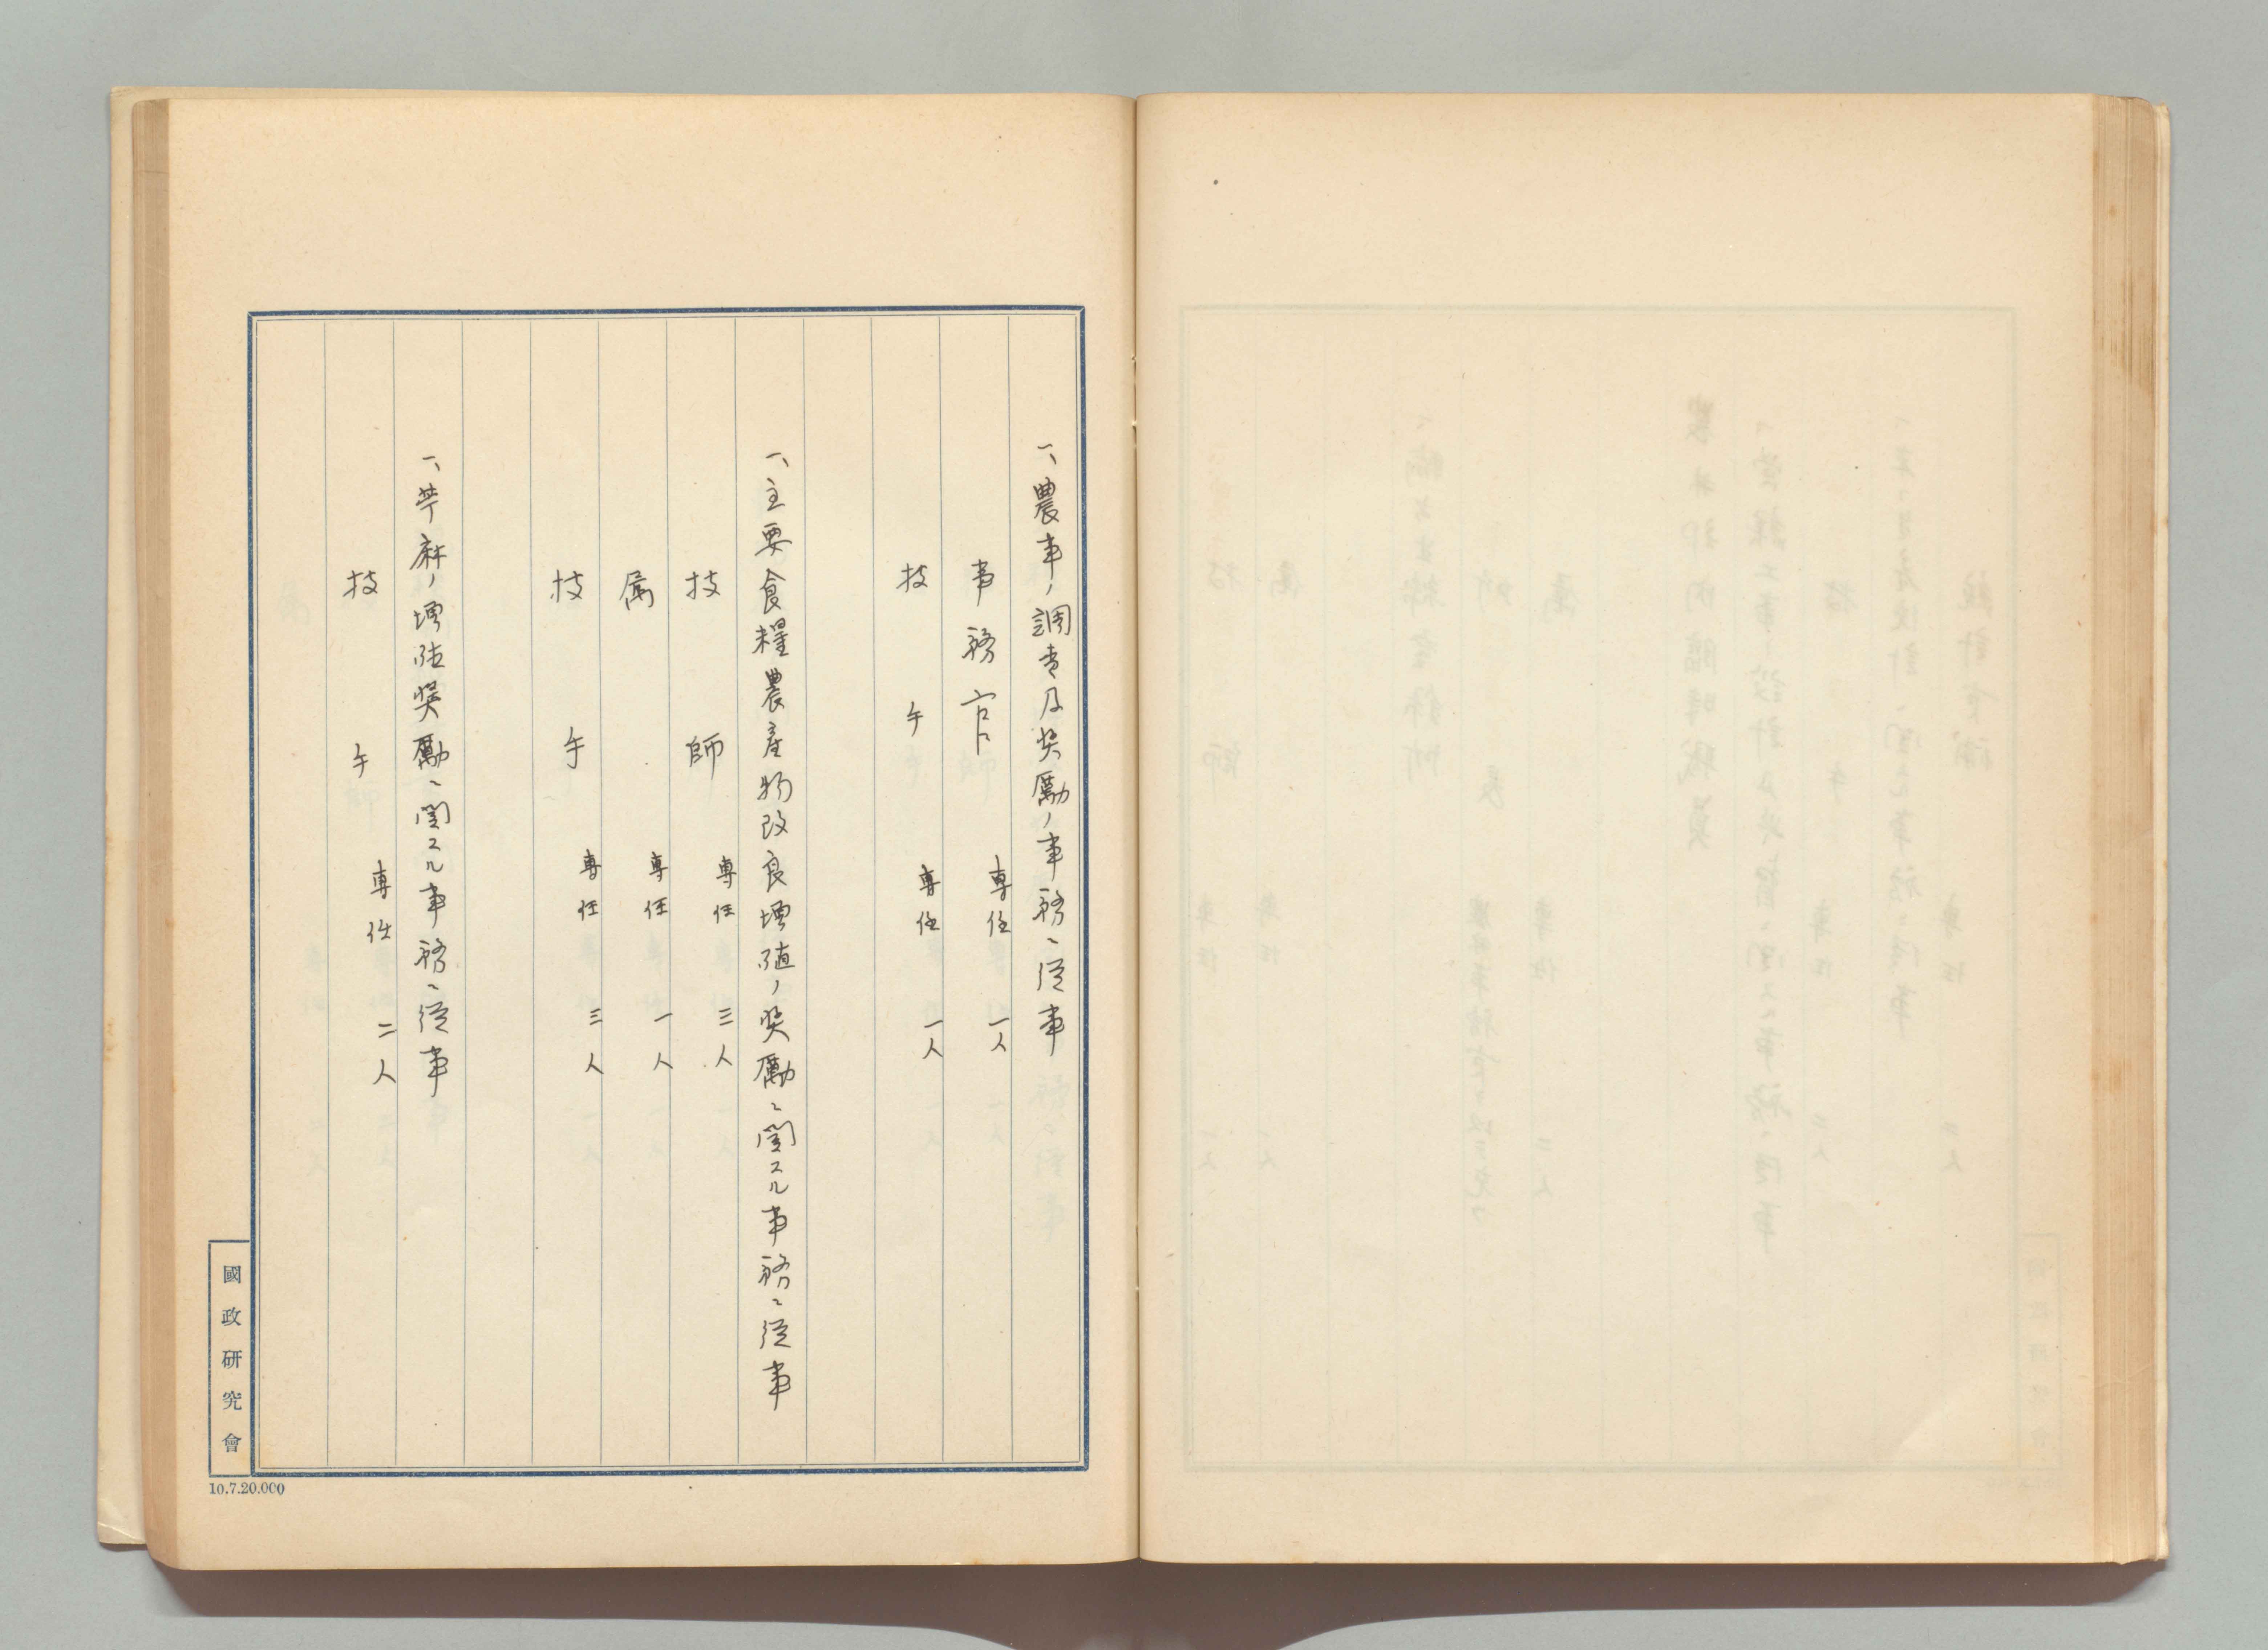 一、農事ノ調査及奨勵ノ事務ニ従事
事務官 専任 一人
技手 専任 一人
一、主要食糧農産物改良増殖ノ奨勵ニ関スル事務ニ従事
技師 専任 三人
属 専任 一人
技手 専任 三人
一、苧麻ノ増殖奨勵ニ関スル事務ニ従事
技手 専任 二人
國政研究會
10.7.20.000